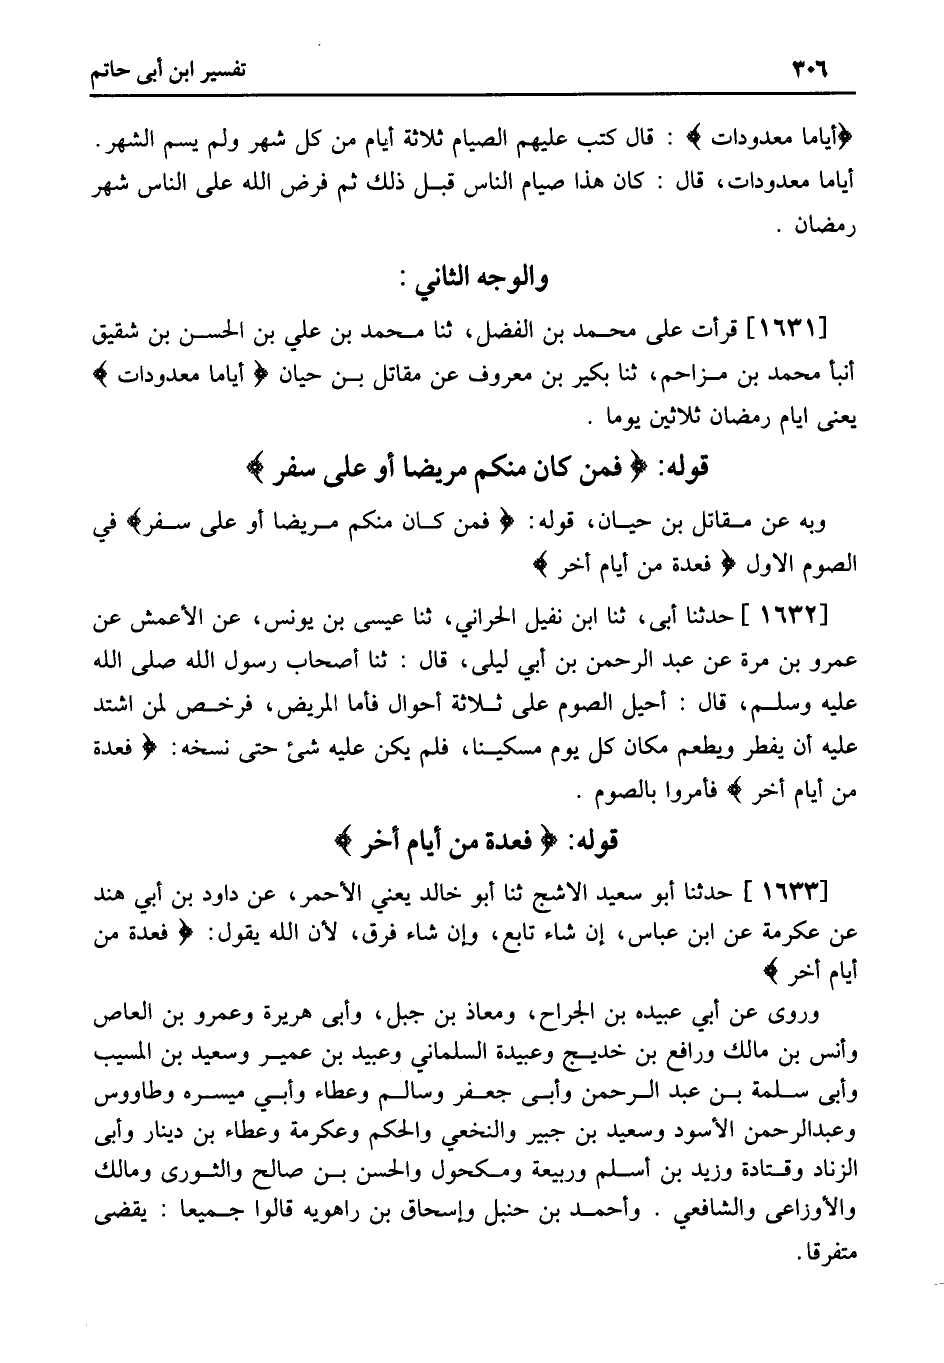 ٣٠٦ تفسير ابن أبى حاتم
﴿أياما معدودات ﴾ : قال كتب عليهم الصيام ثلاثة أيام من كل شهر ولم يسم الشهر.
أياما معدودات، قال : كان هذا صيام الناس قبل ذلك ثم فرض الله على الناس شهر
رمضان .
والوجه الثاني :
[١٦٣١] قرأت على محمد بن الفضل، ثنا محمد بن علي بن الحسن بن شقيق
أنبأ محمد بن مزاحم، ثنا بكير بن معروف عن مقاتل بن حيان ﴿ أياما معدودات ﴾
يعنى ايام رمضان ثلاثين يوما .
قوله: ﴿ فمن كان منكم مريضا أو على سفر ﴾
وبه عن مقاتل بن حيان، قوله: ﴿ فمن كان منكم مريضا أو على سفر﴾ في
الصوم الاول ﴿ فعدة من أيام أخر ﴾
[١٦٣٢ ] حدثنا أبى، ثنا ابن نفيل الحراني، ثنا عيسى بن يونس، عن الأعمش عن
عمرو بن مرة عن عبد الرحمن بن أبي ليلى، قال : ثنا أصحاب رسول الله صلى الله
عليه وسلم، قال : أحيل الصوم على ثلاثة أحوال فأما المريض، فرخص لمن اشتد
عليه أن يفطر ويطعم مكان كل يوم مسكينا، فلم يكن عليه شئ حتى نسخه: ﴿ فعدة
من أيام أخر ﴾ فأمروا بالصوم .
قوله: ﴿ فعدة من أيام أخر ﴾
[١٦٣٣ ] حدثنا أبو سعيد الاشج ثنا أبو خالد يعني الأحمر، عن داود بن أبي هند
عن عكرمة عن ابن عباس، إن شاء تابع، وإن شاء فرق، لأن الله يقول: ﴿ فعدة من
أيام أخر ﴾
وروى عن أبي عبيده بن الجراح، ومعاذ بن جبل، وأبى هريرة وعمرو بن العاص
وأنس بن مالك ورافع بن خديج وعبيدة السلماني وعبيد بن عمير وسعيد بن المسيب
وأبى سلمة بن عبد الرحمن وأبى جعفر وسالم وعطاء وأبي ميسره وطاووس
وعبدالرحمن الأسود وسعيد بن جبير والنخعي والحكم وعكرمة وعطاء بن دينار وأبى
الزناد وقتادة وزيد بن أسلم وربيعة ومكحول والحسن بن صالح والثورى ومالك
والأوزاعى والشافعي . وأحمد بن حنبل وإسحاق بن راهويه قالوا جميعا : يقضى
متفرقا.